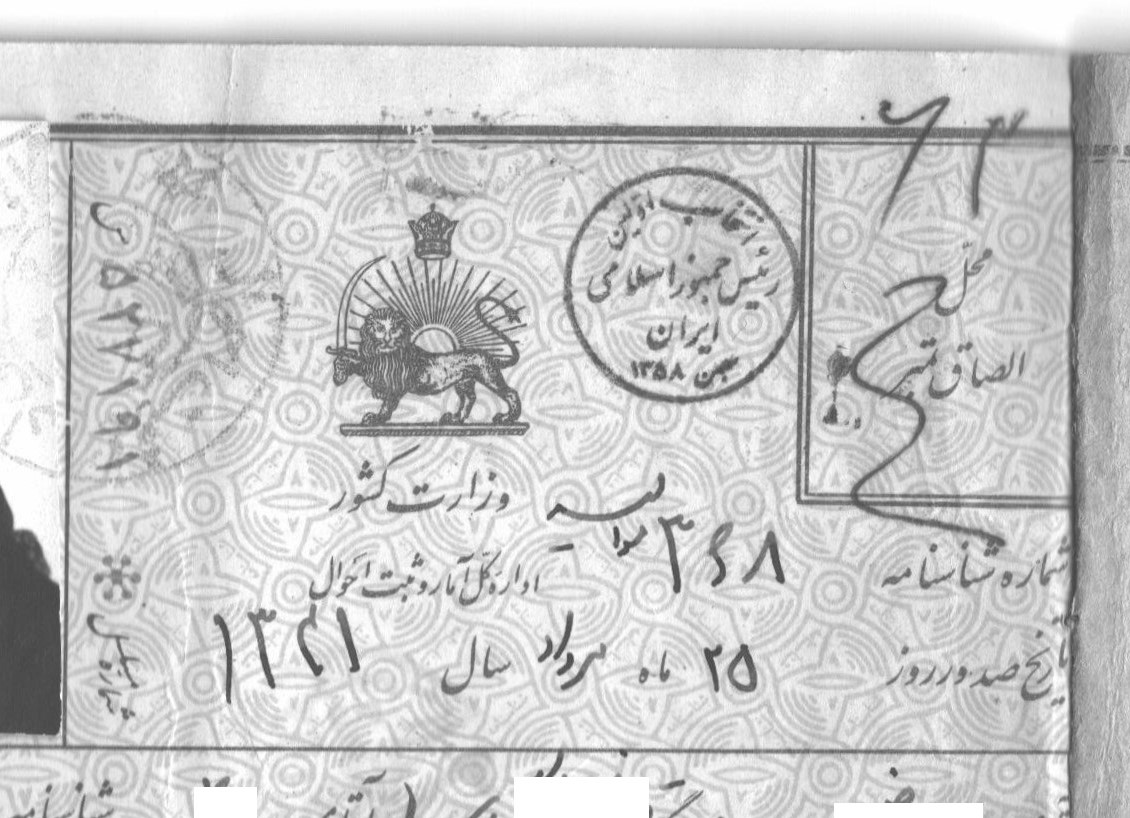 انتخاب اولین
رئیس جمهور اسلامی
ایران
بهمن ۱۳۵۸
محلّ
الصاق تمبر
وزارت کشور
اداره کلّ آمار و ثبت احوال
شماره شناسنامه ۳۶۸
تاریخ صدور روز ۲۵ ماه مرداد سال ۱۳۲۱
شماره مسلسل
۵۲۷۱۹۱
شناسنامه